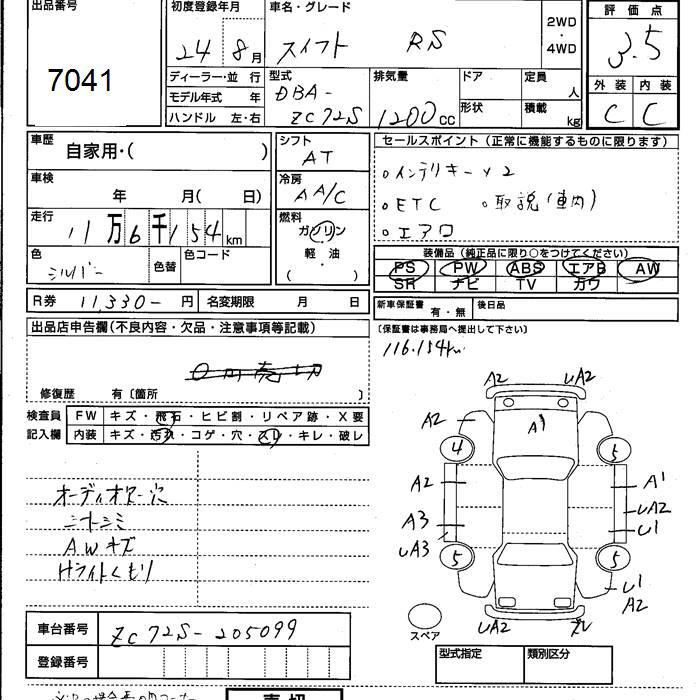 出品番号 初度登録年月 車名・グレード 2WD・4WD 評価点
7041 24 8月 スイフト RS 3.5
ディーラー・並行 型式 排気量 ドア 定員 人 外装 内装
モデル年式 年 DBA- 形状 積載 kg C C
ハンドル 左・右 ZC72S 1200cc
車歴 自家用・( ) シフト AT セールスポイント(正常に機能するものに限ります)
車検 年 月( 日) 冷房 AA/C 。インテリキーx2
走行 11万6千154km 燃料 ガソリン 軽油 ・( ) 。ETC 。取説(車内)
色 シルバー 色替 色コード 。エアロ
装備品(純正品に限り○をつけてください)
PS PW ABS エアB AW
SR ナビ TV カワ
R券 11,330- 円 名変期限 月 日 新車保証書 有・無 後日品
出品店申告欄(不良内容・欠品・注意事項等記載) (保証書は事務局へ提出して下さい)
116.154km
修復歴 有〔箇所 〕
検査員記入欄 FW キズ・飛石・ヒビ割・リペア跡・X要
内装 キズ・汚れ・コゲ・穴・スレ・キレ・破レ
A2 uA2
A2 A1
4 5
A2 A1
uA2
A3 u1
uA3
5 5
u1
A2
uA2
スペア
ニオコミ
AWキズ
Hライトくもり
車台番号 ZC72S-205099
登録番号
型式指定 類別区分